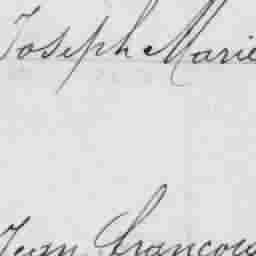 Joseph Marie
Jean Francois